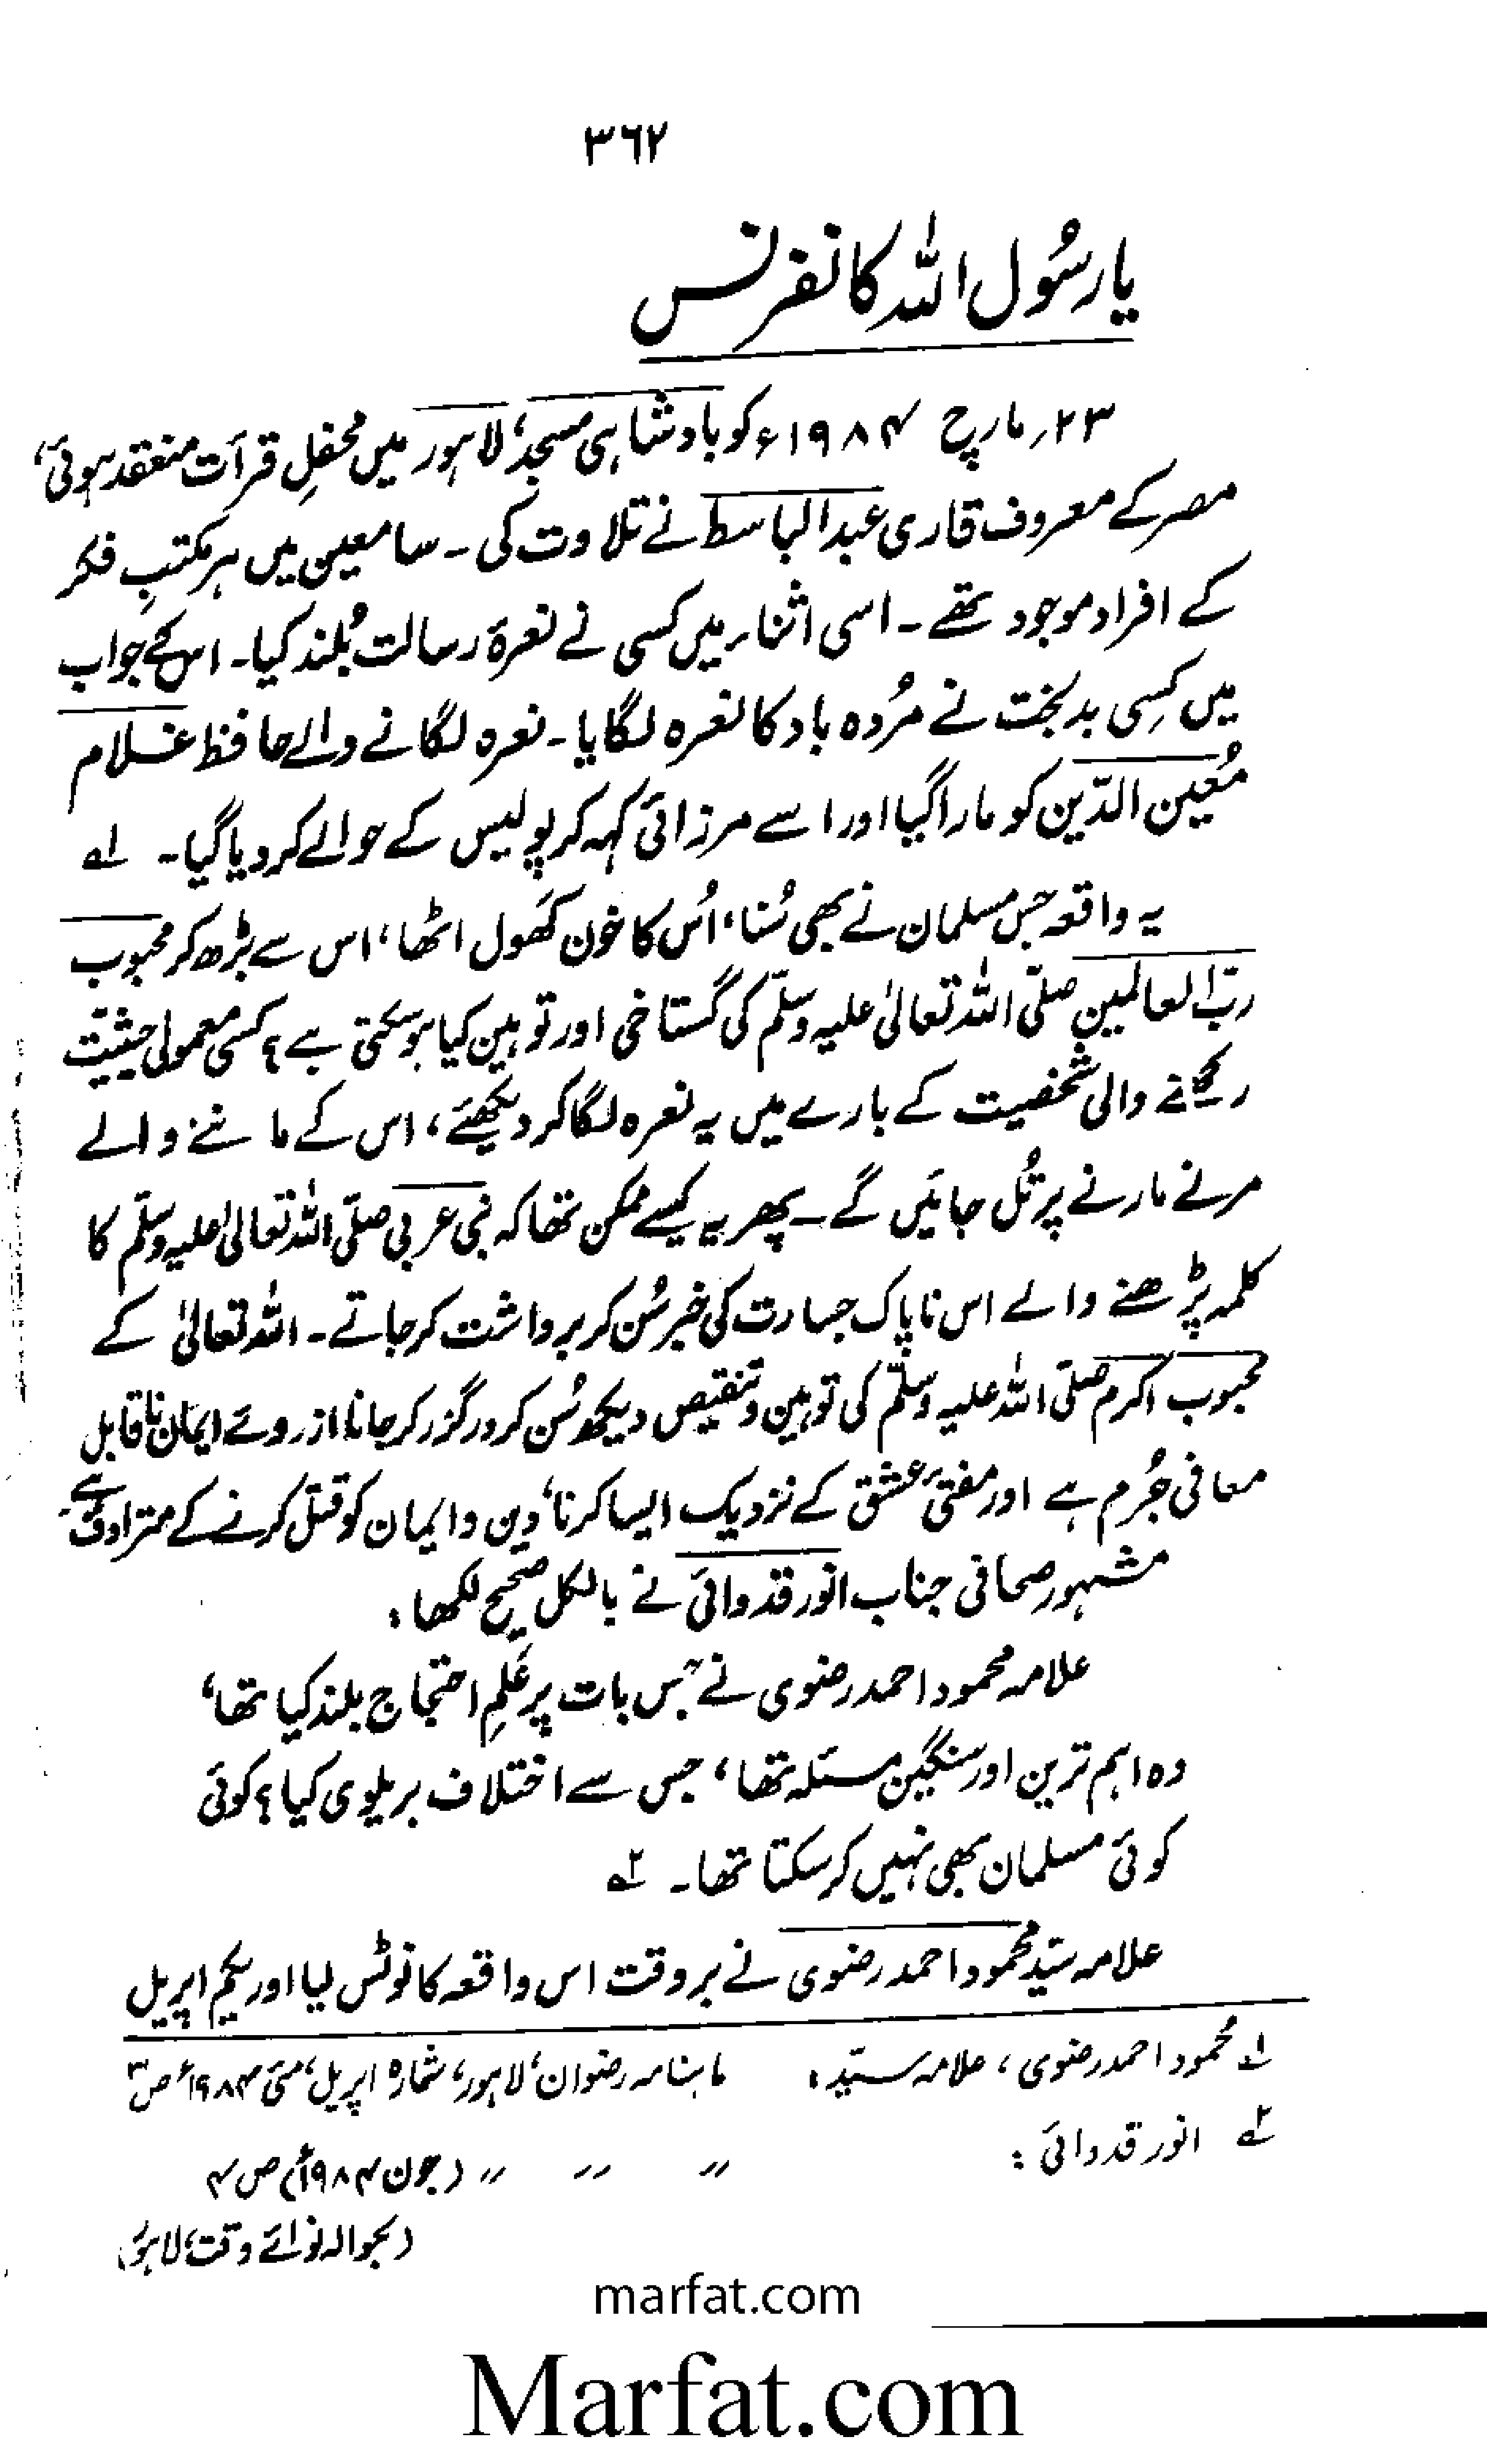 ۳۶۲
یا رسُول اللہ کانفرنس
۲۳؍ مارچ ۱۹۸۴ء کو بادشاہی مسجد، لاہور میں محفلِ قرأت منعقد ہوئی،
مصر کے معروف قاری عبدالباسط نے تلاوت کی۔ سامعین میں ہر مکتبِ فکر
کے افراد موجود تھے۔ اسی اثناء میں کسی نے نعرۂ رسالت بُلند کیا۔ اس کے جواب
میں کِسی بدبخت نے مُردہ باد کا نعرہ لگایا۔ نعرہ لگانے والے حافظ غلام
مُعین الدّین کو مارا گیا اور اسے مرزائی کہہ کر پولیس کے حوالے کر دیا گیا۔ ؎۱
یہ واقعہ جس مسلمان نے بھی سُنا، اُس کا خون کھَول اٹھا، اس سے بڑھ کر محبوب
ربّ العالمین صلّی اللہ تعالیٰ علیہ وسلّم کی گستاخی اور توہین کیا ہوسکتی ہے؟ کسی معمولی حیثیّت
رکھنے والی شخصیت کے بارے میں یہ نعرہ لگا کر دیکھئے، اس کے ماننے والے
مرنے مارنے پر تُل جائیں گے۔ پھر یہ کیسے ممکن تھا کہ نبی عربی صلّی اللہ تعالیٰ علیہ وسلّم کا
کلمہ پڑھنے والے اس ناپاک جسارت کی خبر سُن کر برداشت کر جاتے۔ اللہ تعالیٰ کے
محبوب اکرم صلّی اللہ علیہ وسلّم کی توہین و تنقیص دیکھ سُن کر درگزر کر جانا از روئے ایمان ناقابل
معافی جُرم ہے اور مفتیٔ عشق کے نزدیک ایسا کرنا، دین و ایمان کو قتل کرنے کے مترادف ہے۔
مشہور صحافی جناب انور قدوائی نے بالکل صحیح لکھا:
علامہ محمود احمد رضوی نے جس بات پر عَلمِ احتجاج بلند کیا تھا،
وہ اہم ترین اور سنگین مسئلہ تھا، جس سے اختلاف بریلوی کیا؟ کوئی
کوئی مسلمان بھی نہیں کر سکتا تھا۔ ؎۲
علامہ سیّد محمود احمد رضوی نے بروقت اس واقعہ کا نوٹس لیا اور یکم اپریل
؎۱ محمود احمد رضوی، علامہ سیّد: ماہنامہ رضوان، لاہور، شمارہ اپریل، مئی ۱۹۸۴ء ص ۳
؎۲ انور قدوائی: 〃 〃 〃 (جون ۱۹۸۴ء) ص ۴
(بحوالہ نوائے وقت، لاہور)
marfat.com
Marfat.com